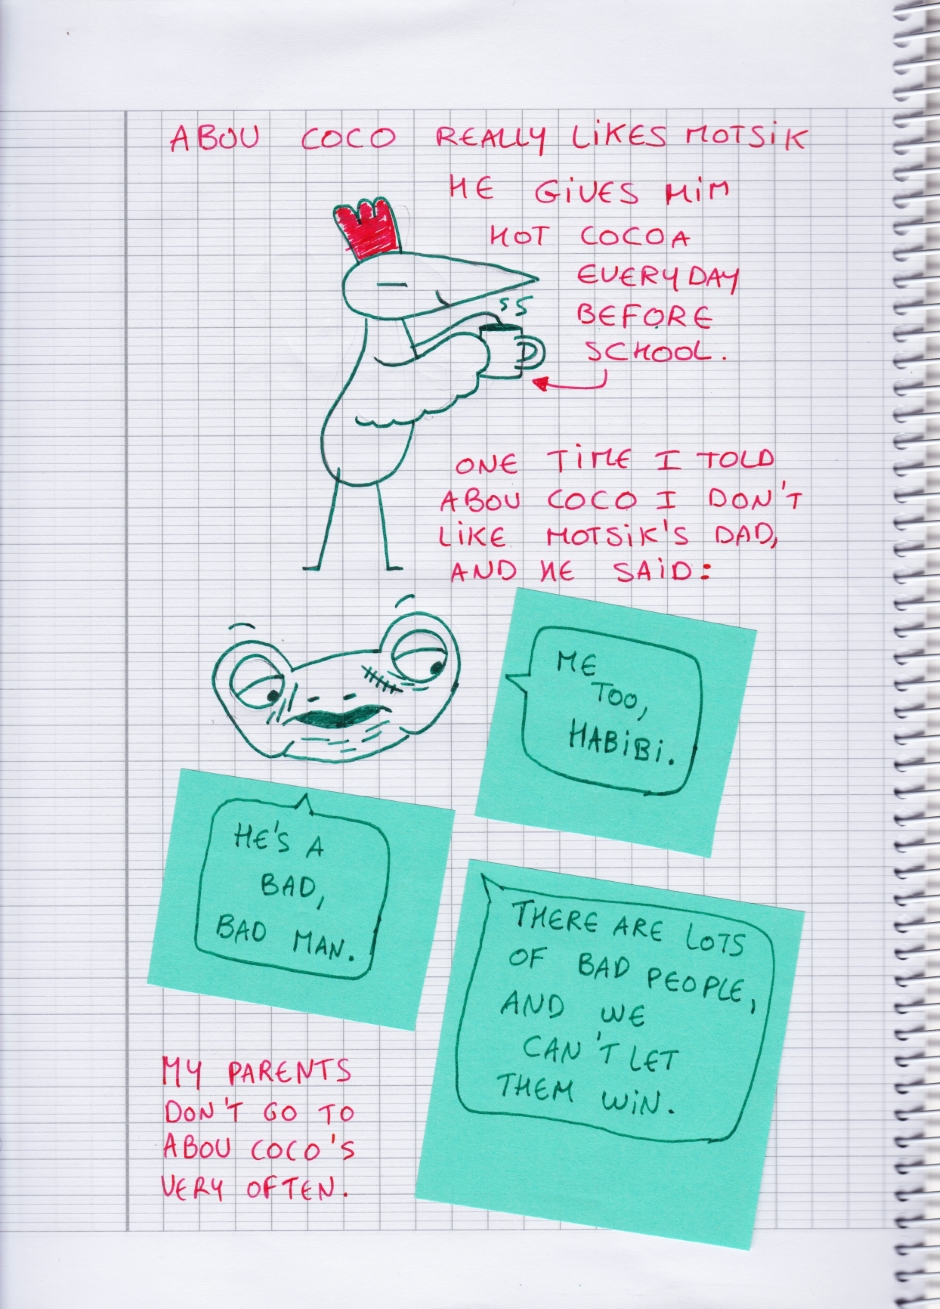 ABOU COCO REALLY LIKES MOTSIK
HE GIVES HIM
HOT COCOA
EVERYDAY
BEFORE
SCHOOL.
ONE TIME I TOLD
ABOU COCO I DON'T
LIKE MOTSIK'S DAD,
AND HE SAID:
ME
TOO,
HABIBI.
HE'S A
BAD,
BAD MAN.
THERE ARE LOTS
OF BAD PEOPLE,
AND WE
CAN'T LET
THEM WIN.
MY PARENTS
DON'T GO TO
ABOU COCO'S
VERY OFTEN.